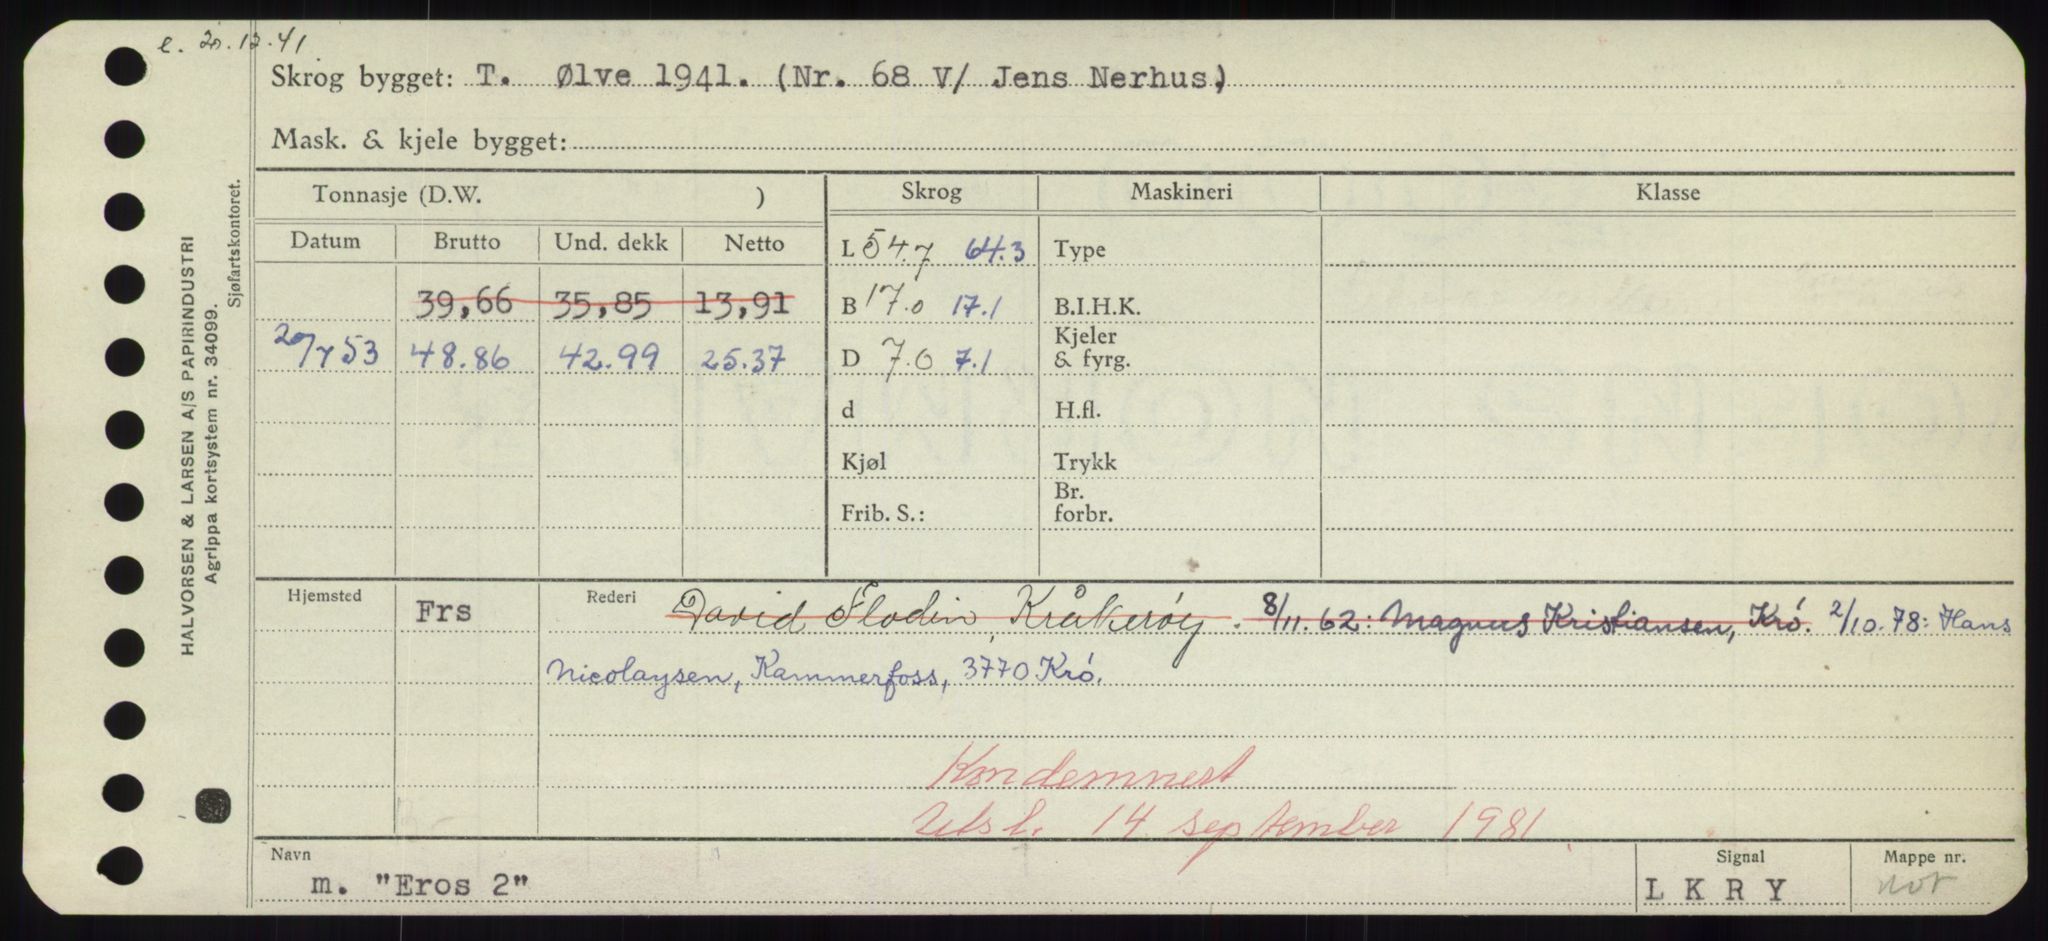 e. 20.12.41
Skrog bygget: T. Ølve 1941. (Nr. 68 V/ Jens Nerhus)
Mask. & kjele bygget:
HALVORSEN & LARSEN A/S PAPIRINDUSTRI
Agrippa kortsystem nr. 34099.
Sjøfartskontoret.
Tonnasje (D.W. ) Skrog Maskineri Klasse
Datum Brutto Und. dekk Netto L 54.7 64.3 Type
39,66 35,85 13,91 B 17.0 17.1 B.I.H.K.
20/7 53 48.86 42.99 25.37 D 7.0 7.1 Kjeler & fyrg.
d H.fl.
Kjøl Trykk
Frib. S.: Br. forbr.
Hjemsted Frs Rederi David Flodin, Kråkerøy. 8/11.62: Magnus Kristiansen, Krø. 2/10.78: Hans
Nicolaysen, Kammerfoss, 3770 Krø.
Kondemnert
Utsl. 14 september 1981
Navn Signal Mappe nr.
m. "Eros 2" L K R Y